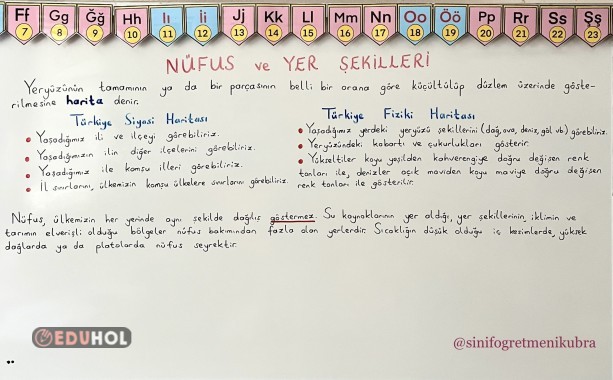 Ff Gg Ğğ Hh Iı İi Jj Kk Ll Mm Nn Oo Öö Pp Rr Ss Şş
7 8 9 10 11 12 13 14 15 16 17 18 19 20 21 22 23
NÜFUS ve YER ŞEKİLLERİ
Yeryüzünün tamamının ya da bir parçasının belli bir orana göre küçültülüp düzlem üzerinde göste-
rilmesine harita denir.
Türkiye Siyasi Haritası
• Yaşadığımız ili ve ilçeyi görebiliriz.
• Yaşadığımızın ilin diğer ilçelerini görebiliriz.
• Yaşadığımız ile komşu illeri görebiliriz.
• İl sınırlarını, ülkemizin komşu ülkelere sınırlarını görebiliriz.
Türkiye Fiziki Haritası
• Yaşadığımız yerdeki yeryüzü şekillerini (dağ, ova, deniz, göl vb) görebiliriz.
• Yeryüzündeki kabartı ve çukurlukları gösterir.
• Yükseltiler koyu yeşilden kahverengiye doğru değişen renk
tonları ile, denizler açık maviden koyu maviye doğru değişen
renk tonları ile gösterilir.
Nüfus, ülkemizin her yerinde aynı şekilde dağılış göstermez. Su kaynaklarının yer aldığı, yer şekillerinin, iklimin ve
tarımın elverişli olduğu bölgeler nüfus bakımından fazla olan yerlerdir. Sıcaklığın düşük olduğu iç kesimlerde, yüksek
dağlarda ya da platolarda nüfus seyrektir.
EDUHOL
@sinifogretmenikubra